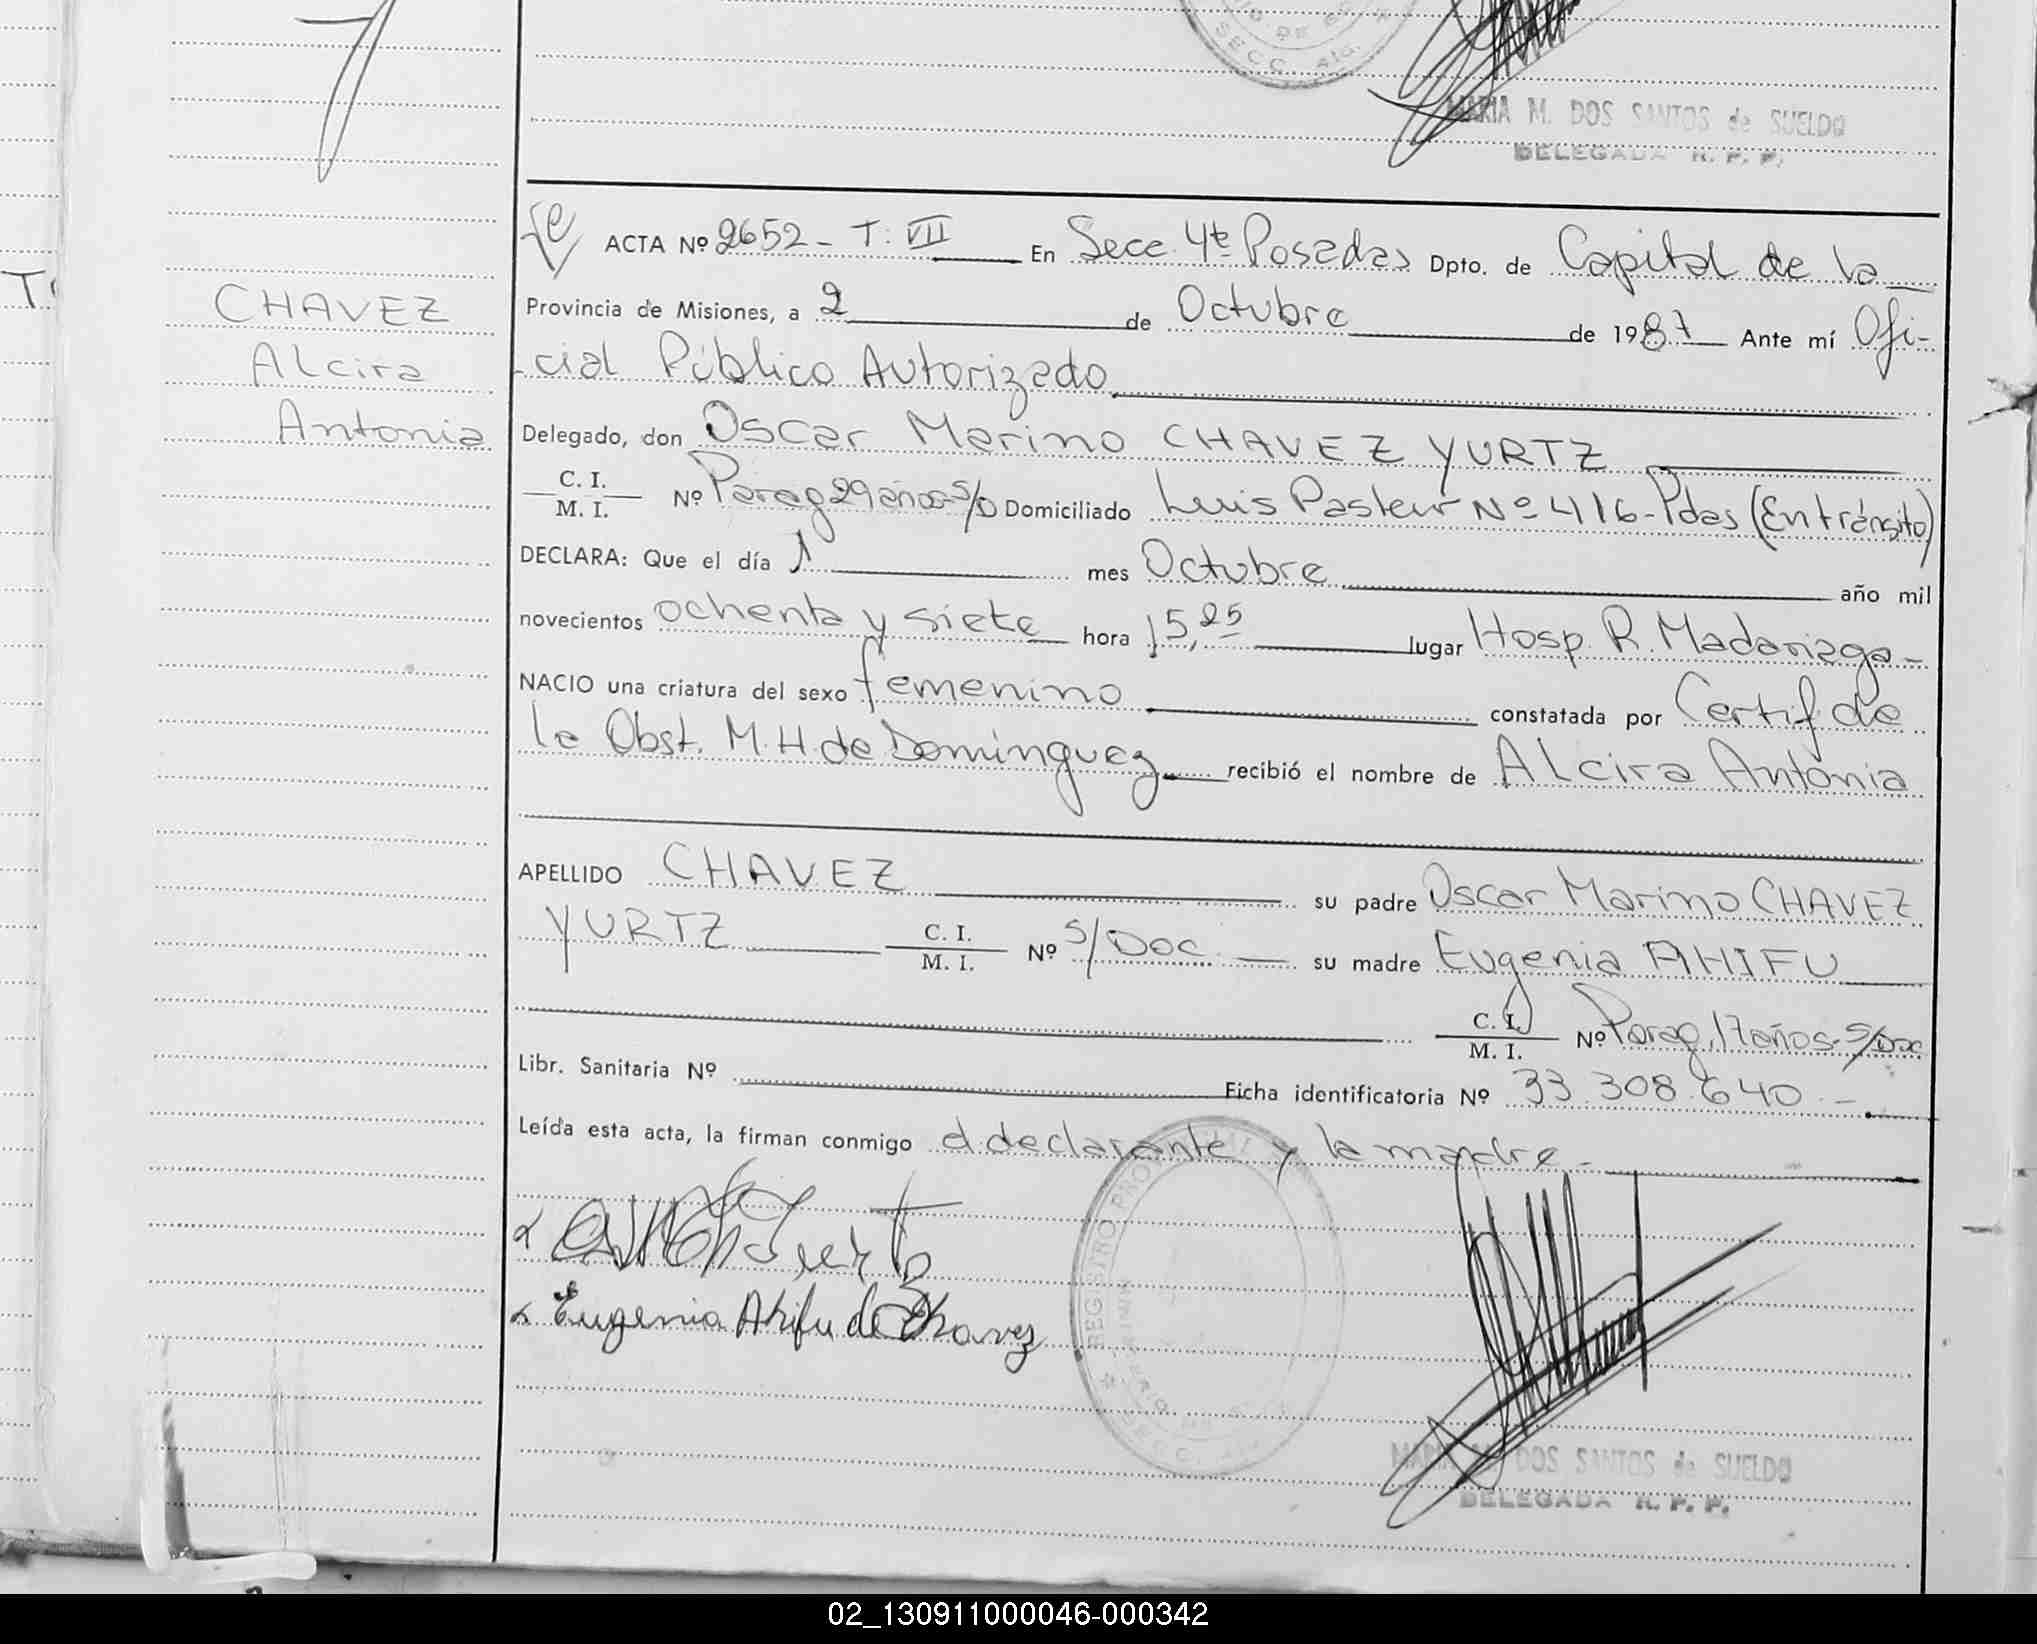 SECC.
MARIA M. DOS SANTOS de SUELDO
DELEGADA R. P. P.
ACTA Nº 2652 - T: VII En Secc. 4ta Posadas Dpto. de Capital de la
CHAVEZ
Alcira
Antonia
Provincia de Misiones, a 2 de Octubre de 1987 Ante mí Ofi-
cial Público Autorizado
Delegado, don Oscar Marino CHAVEZ YURTZ
C. I.
M. I. Nº Parag 29 años-S/D Domiciliado Luis Pasteur Nº 416-Pdas (En tránsito)
DECLARA: Que el día 1 mes Octubre año mil
novecientos ochenta y siete hora 15,25 lugar Hosp. R. Madariaga-
NACIO una criatura del sexo femenino constatada por Certif de
la Obst. M. H. de Dominguez recibió el nombre de Alcira Antonia
APELLIDO CHAVEZ su padre Oscar Marino CHAVEZ
YURTZ C. I. M. I. Nº S/Doc. su madre Eugenia AHIFU
C. I. M. I. Nº Parag, 17 años-S/Doc
Libr. Sanitaria Nº Ficha identificatoria Nº 33.308.640.-
Leída esta acta, la firman conmigo el declarante y la madre.-
Eugenia Ahifu de Chavez
REGISTRO PROVINCIAL
SECC.
MARIA M. DOS SANTOS de SUELDO
DELEGADA R. P. P.
02_130911000046-000342